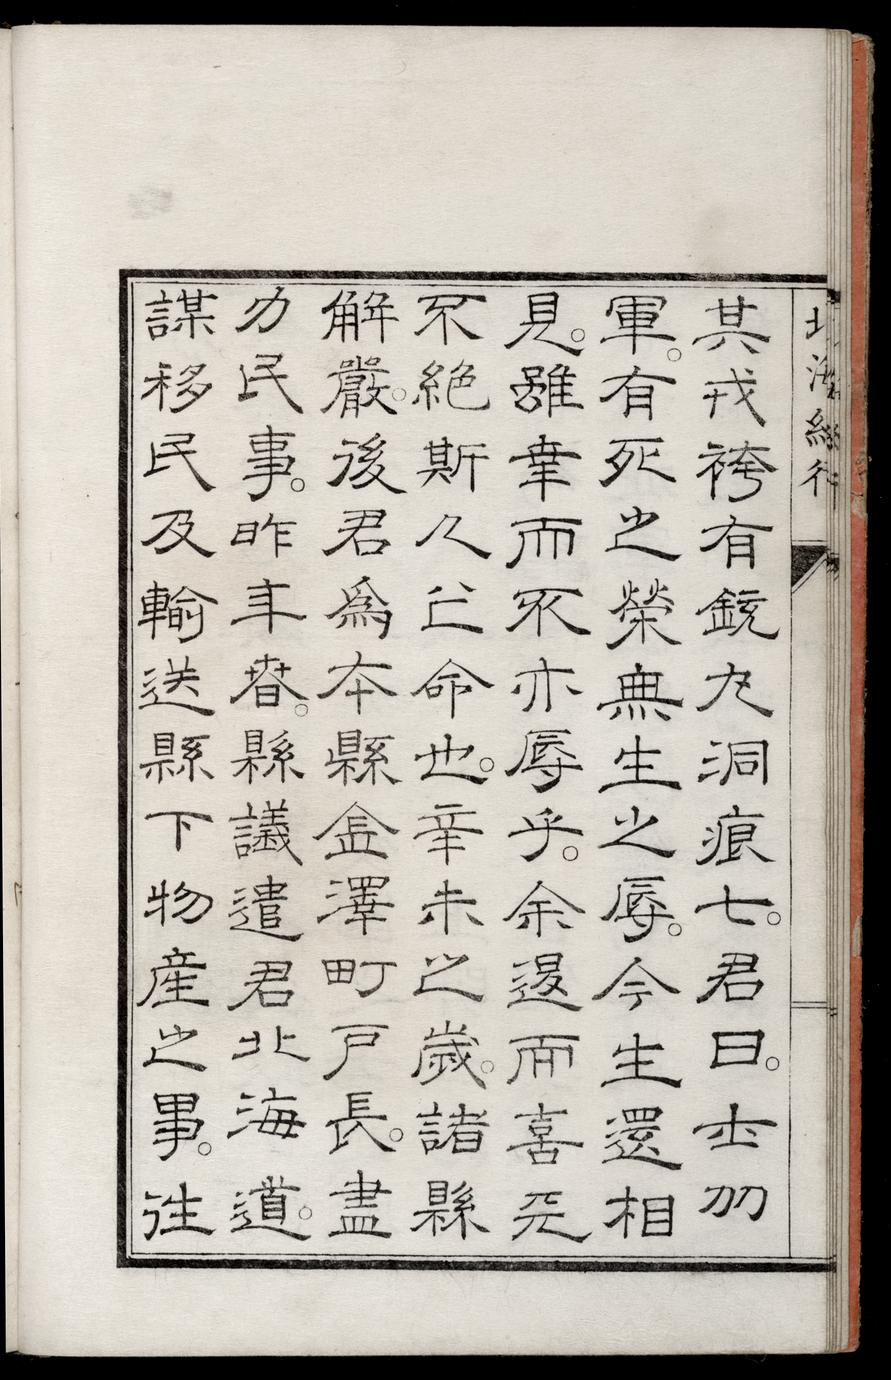 其戎袴有銃丸洞痕七。君曰。士加
軍。有死之榮無生之辱。今生還相
見。雖幸而不死亦辱乎。余退而喜
不絶斯人之命也。辛未之歳。諸縣
解嚴。後君爲本縣金澤町戸長。盡
力民事。昨年春。縣議遣君北海道。
謀移民及輸送縣下物産之事。往
北海紀行